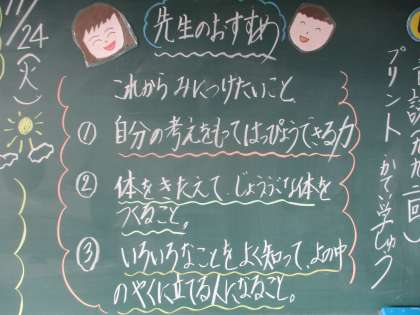 11/24
(火)
先生のおすすめ
これから みにつけたいこと
① 自分の考えをもってはっぴょうできる力
② 体をきたえて、じょうぶな体を
つくること。
③ いろいろなことをよく知って、よの中
のやくに立てる人になること。
プリント かて学しゅう